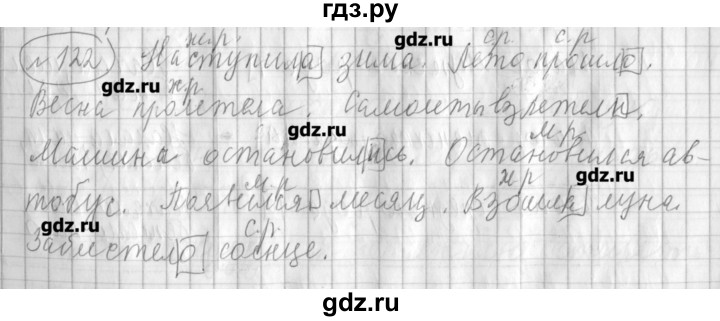 гдз.ру
ж.р. ср. с.р
№122 Наступила зима. Лето прошло.
gdz.ru gdz.ru
ж.р
Весна пролетела. Самолеты взлетели.
gdz.ru м.р.
Машина остановилась. Остановился ав-
м.р ж р gdz.ru
тобус. Появился месяц. Взошла луна.
gdz.ru с.р.
Заблестело солнце.
gdz.ru